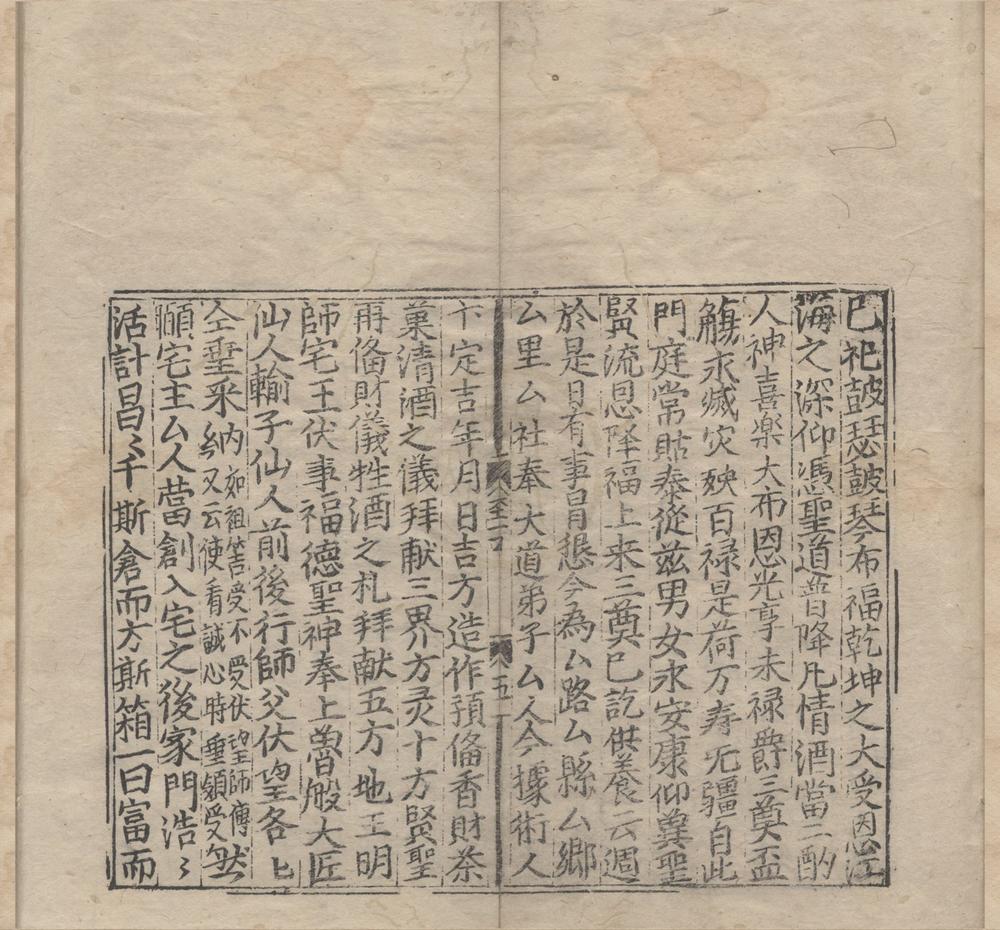 已祀皷瑟皷琴布福乾坤之大受恩江
海之深仰憑聖道普降凡情酒當二酌
人神喜樂大布恩光享未禄爵三奠盃
觴永滅灾殃百禄是荷万寿无疆自此
門庭常貼泰從兹男女永安康仰兾聖
賢流恩降福上来三奠已訖供養云週
於是日有事冐恳今為厶路厶縣厶鄉
厶里厶社奉大道弟子厶人今據術人
卞定吉年月日吉方造作預俻香財茶
菓清酒之儀拜献三界方灵十方賢聖
再俻財儀牲酒之礼拜献五方地主明
師宅王伏事福德聖神奉上魯般大匠
仙人輸子仙人前後行師父伏望各匕
仝垂采納如祖筶受不受伏望師傳
又云使看誠心時垂領受然
願宅主厶人营創入宅之後家門浩〻
活計昌〻千斯倉而万斯箱一曰富而
五